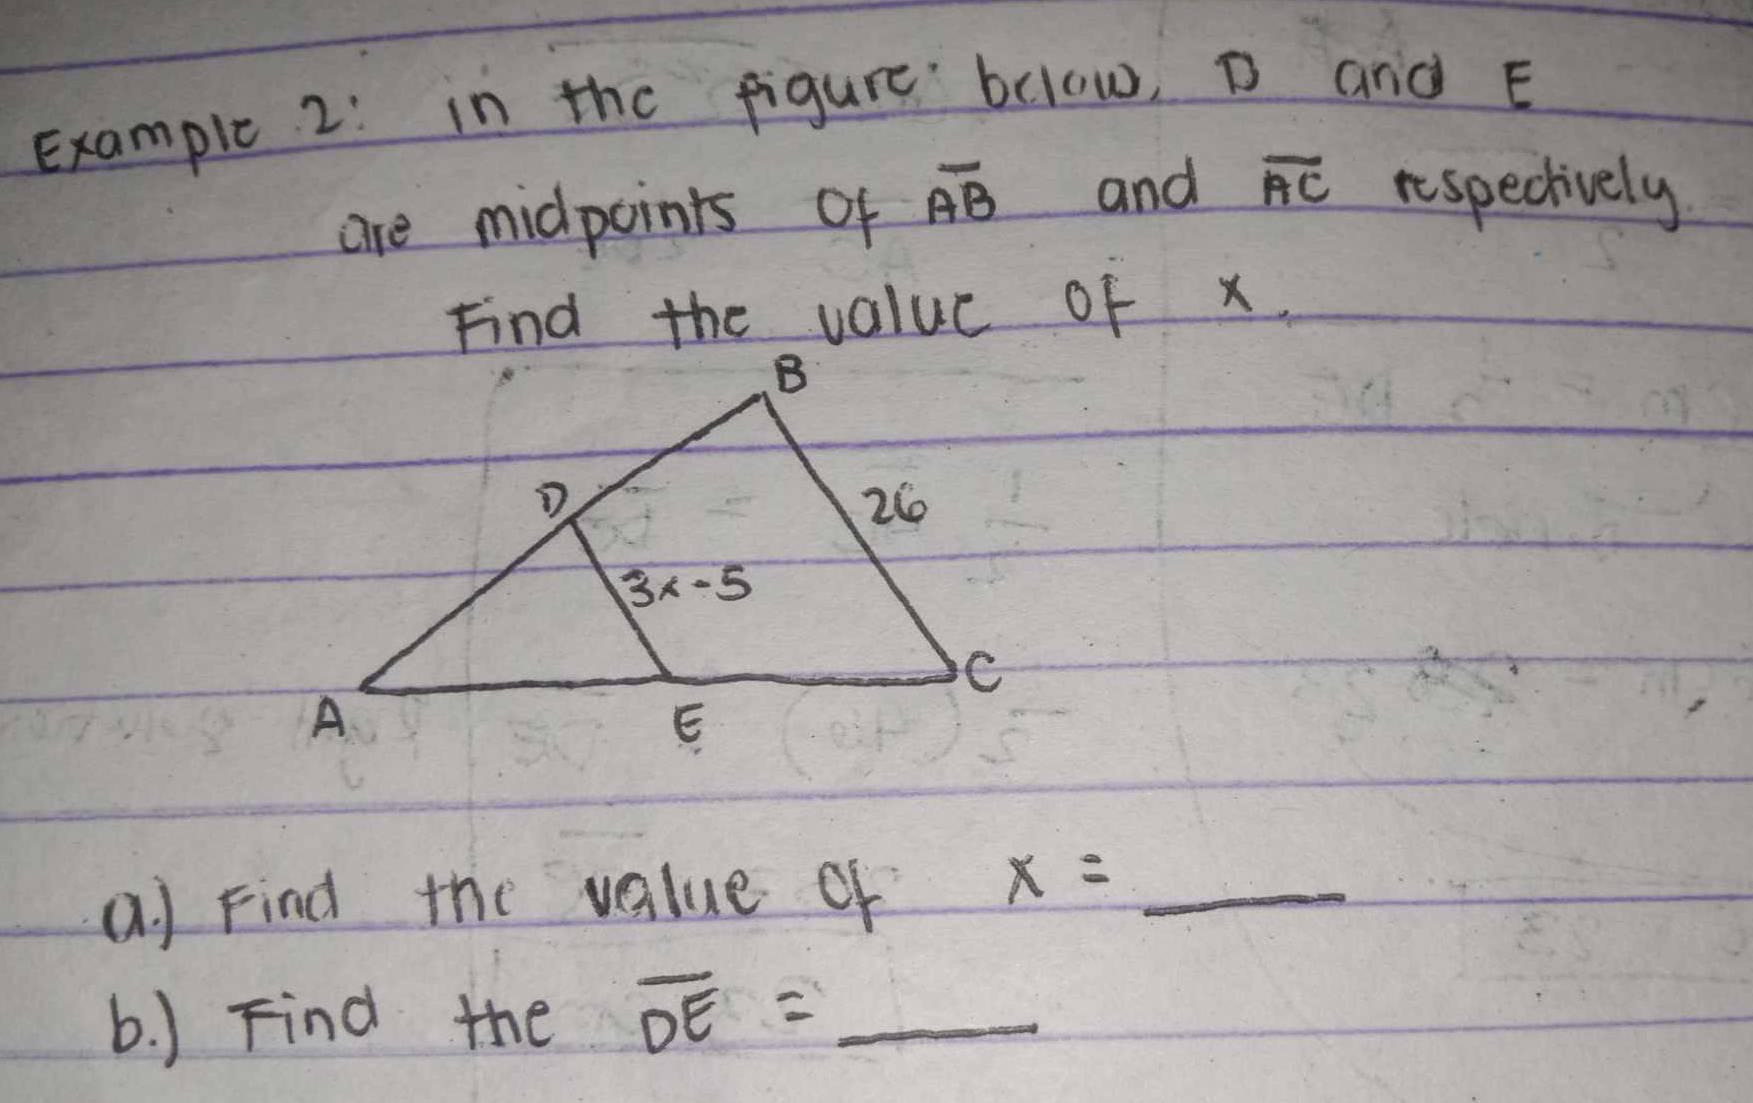 Example 2: in the figure below, D and E
are midpoints of AB and AC respectively.
Find the value of x.
B
D
26
3x-5
A
E
C
a.) Find the value of x = ____
b.) Find the DE = ____